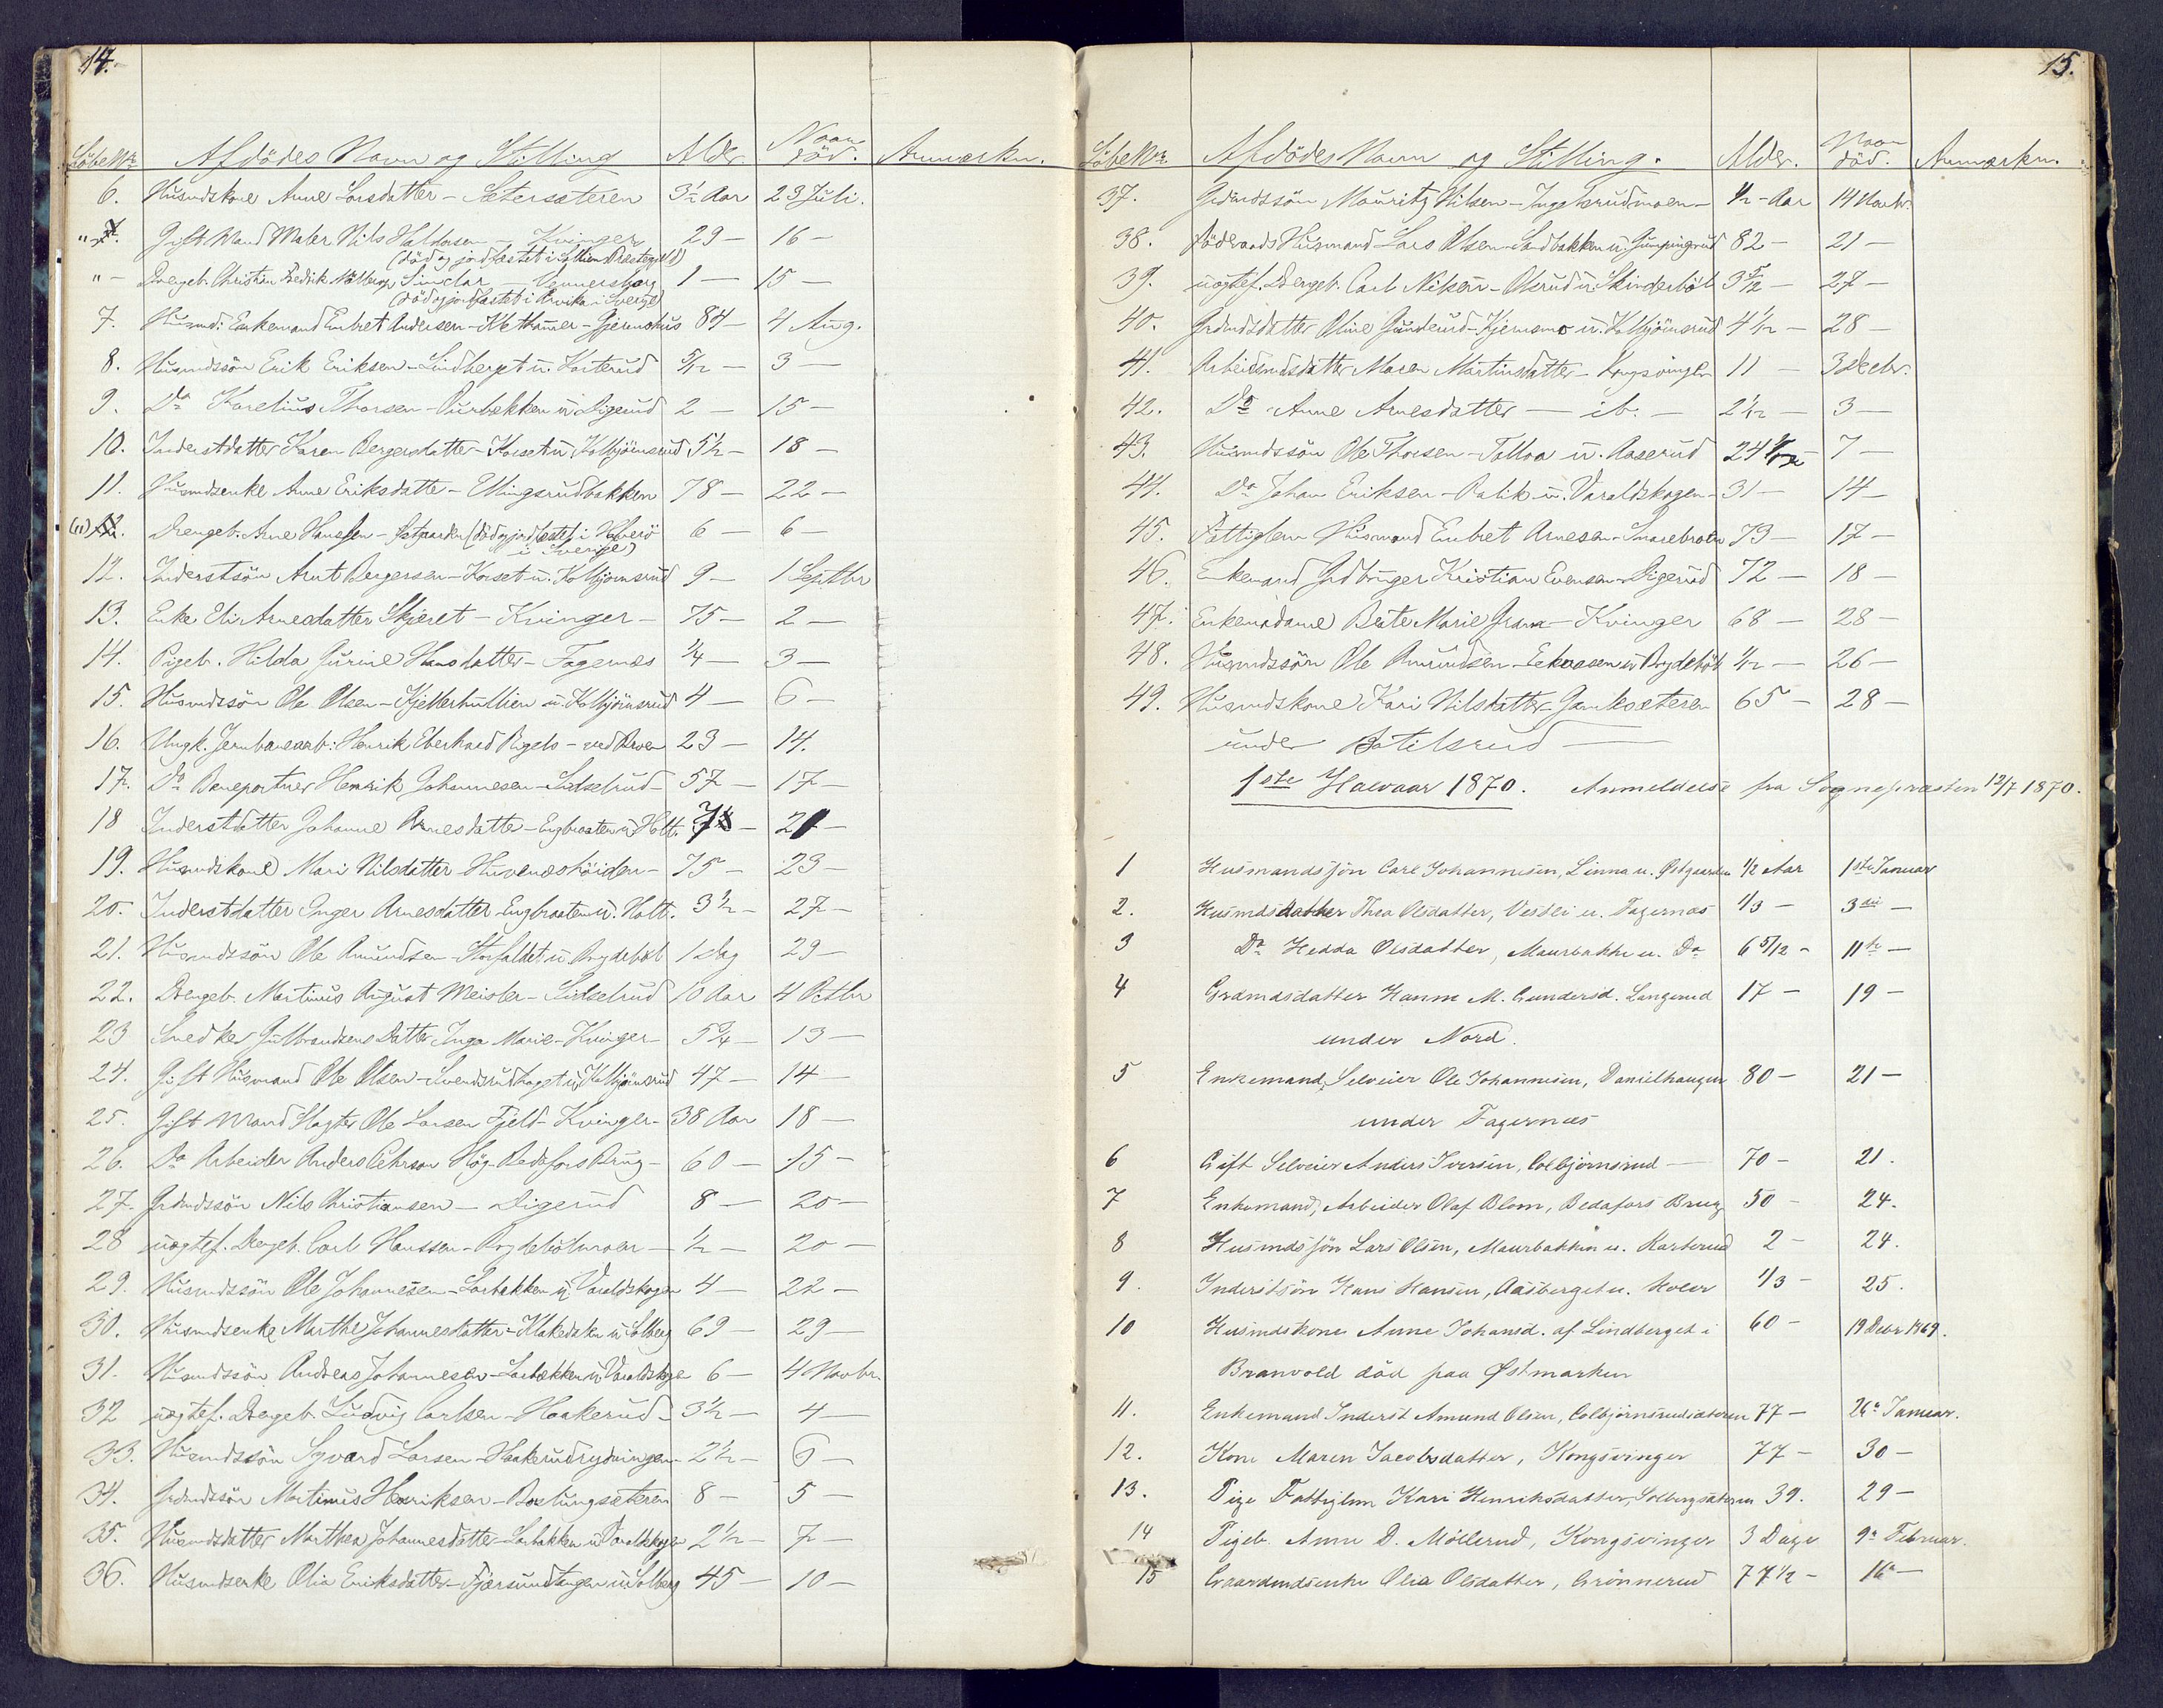 14.
LöbeNr. Afdödes Navn og Stilling Alder. Naar död. Anmærkn.
6. Husmdskone Anne Larsdatter - Sætersæteren 3½ Aar 23 Juli.
"-7. Gift Mand Maler Nils Haldorsen - Kvinger 29 - 16 -
(död og jordfæstet i Præstegjeld)
" - Drengeb. Christian Fredrik Sinclar Vennersborg 1 - 15 -
(död og jordfæstet i Arvika i Sverge)
7. Husmd: Enkemand Embret Andersen - Gjermshus 84 - 4 Aug.
8. Husmdssön Erik Eriksen - Lindberget u. Karterud 5/12 - 3 -
9. Do Karelius Thorsen - u. Digerud 2 - 15 -
10. Inderstdatter Karen Bergersdatter - Korset u. Kolbjörnsrud 5½ - 18 -
11. Husmdsenke Anne Eriksdatter - Ellingsrudbakken 78 - 22 -
(11) 12. Drengeb. Arne Hanssen - (död og jordfæstet i
i Sverige) 6 - 6 -
12. Inderstsön Arnt Bergersen - Korset u. Kolbjörnsrud 9 - 1 Septbr
13. Enke Eli Arnesdatter Skjeret - Kvinger - 75 - 2 -
14. Pigeb. Hilda Gurine Hansdatter - Fagernæs ¼ - 3 -
15. Husmdssön Ole Olsen - u. Kolbjörnsrud 4 - 6 -
16. Ungk. Jernbanearb: Henrik Eberhard - ved 23 - 14.
17. Do Baneportner Henrik Johannesen - Lidselrud - 57 - 17 -
18 Inderstdatter Johanne Arnesdatter - Engbraaten u. Holt. 7½ - 21 -
19. Husmdskone Mari Nilsdatter - 75 - 23 -
20. Inderstdatter Inger Arnesdatter Engbraaten u. Holt. 3½ - 27 -
21. Husmdssön Ole Amundsen - Storfaldet u. Brydeböl 1 Dag 29 -
22. Drengeb. Martinus August Meisler - Lidselrud 10 Aar 4 Octbr
23 Snedker Gulbrandsens Datter Inga Marie - Kvinger - 5¾ - 13 -
24. Gift Husmand Ole Olsen - Svendsrudhaget u. Kolbjörnsrud 47 - 14 -
25. Gift Mand Slagter Ole Larsen Fjeld - Kvinger - 38 Aar 18 -
26. Do Arbeider Anders Pehrson Hög - Bedafors Brug - 60 - 15 -
27. Grdmdssön Nils Christiansen - Digerud 8 - 20 -
28 uægtef. Drengeb. Carl Hanssen - Brydebölmoen - ½ - 20 -
29. Husmdssön Ole Johannesen - Lorbakken u. Varaldskogen 4 - 22 -
30. Husmdsenke Marthe Johannesdatter - u. Solberg 69 - 29 -
31. Husmdssön Andreas Johannesen - Lorbakken u. Varaldskogn 6 - 4 Novbr.
32 uægtef. Drengeb. Ludvig Carlsen - Haakerud - 3½ - 4 -
33. Husmdssön Syvard Larsen - Haakerudrydningen - 2½ - 6 -
34. Grdmdssön Martinus Henriksen - 8 - 5 -
35. Husmdsdatter Marthea Johannesdatter - Lorbakken u. Varaldskogen 2½ - 7 -
36. Husmdsenke Olia Eriksdatter - Fjærsundtangen u. Solberg 45 - 10 -
15.
LöbeNr. Afdödes Navn og Stilling. Alder. Naar död. Anmærkn.
37. Grdmdssön Mauritz Nilsen - Ingelsrudmoen - ½ - Aar 14 Novbr.
38. Föderaads Husmand Lars Olsen - Sandbakken u. Gumpingrud 82 - 21 -
39. uægtef. Drengeb. Carl Nilsen - Olsrud u. Skinderböl 3 5/12 - 27 -
40. Grdmdsdatter Oline - Gjermsmo u. Kolbjörnsrud 4 1/12 - 28 -
41. Arbeidsmdsdatter Maren Martinsdatter - Kongsvinger 11 - 3 Decbr.
42. Do Anne Arnesdatter - ib. - 2 1/12 - 3 -
43. Husmdssön Ole Thorsen - Talloa u. Aaserud 24 - 7 -
44. Do Johan Eriksen - Balik u. Varaldskogen - 31 - 14 -
45. Fattiglem Husmand Embret Arnesen - 73 - 17 -
46. Enkemand Grdbruger Kristian Evensen - Digerud 72 - 18 -
47. Enkemadame Beate Marie Gram - Kvinger 68 - 28 -
48. Husmdssön Ole Amundsen - Eekaasen u. Brydeböl 1/12 - 26 -
49. Husmdskone Kari Nilsdatter - Gamksæteren 65 - 28 -
under Botilsrud
1ste Halvaar 1870. Anmeldelse fra Sognepræsten 12/7 1870.
1 Husmandssön Carl Johannesen, Linna u. Östgaarden ½ Aar 1ste Januar
2. Husmdsdatter Thea Olsdatter, Vestli u. Fagernæs 1/3 - 3die -
3 Do Hedda Olsdatter, Maurbakke u. Do 6 5/12 - 11te -
4 Grdmdsdatter Hanna M. Gundersd. Langerud 17 - 19 -
under Nord.
5 Enkemand, Selveier Ole Johannesen, Danielhaugen 80 - 21 -
under Fagernæs
6 Gift Selveier Anders Iversen, Colbjörnsrud - 70 - 21.
7 Enkemand, Arbeider Olaf Blom, Bedafors Brug 50 - 24.
8 Husmdssön Lars Olsen, Maurbakken u. Karterud 2 - 24.
9. Inderstsön Hans Hansen, Aasberget u. Holer 1/3 - 25.
10 Husmdskone Anne Johansd. af Lindberget i 60 - 19 Decbr 1869.
Branvold död paa Østmarken
11. Enkemand Inderst Amund Olsen, Colbjörnsrudsæteren 77 - 26de Januar.
12. Kone Maren Jacobsdatter, Kongsvinger 77 - 30 -
13. Pige Fattiglem Kari Henriksdatter, Solbergsæteren 39. 29 -
14 Pigeb. Anne D. Möllerud, Kongsvinger 3 Dage 9de Februar.
15 Gaardmdsenke Olia Olsdatter, Grönnerud 77½ - 16 -